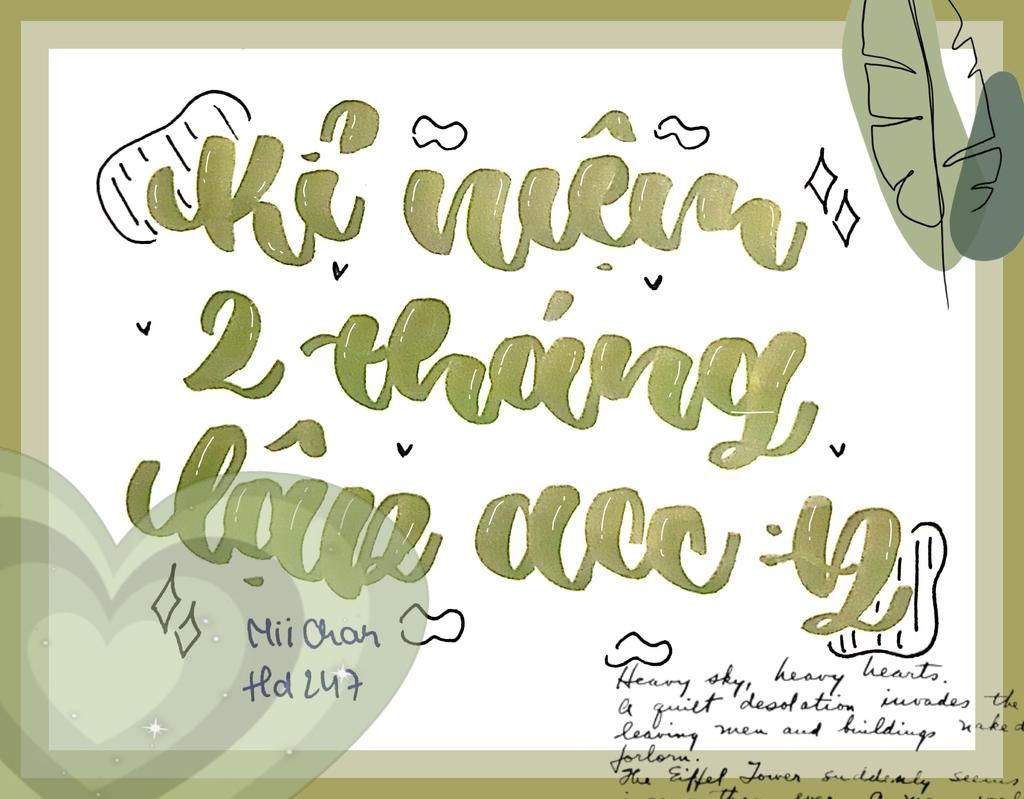 Kỉ niệm
2 tháng
lập acc :y
Mii Chan
Hd 247
Heavy sky, heavy hearts.
A quilt desolation invades the
leaving men and buildings naked
forlorn.
The Eiffel Tower suddenly seems